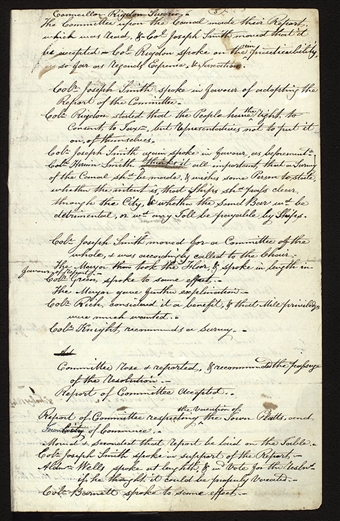 Councillor Rigdon
The Committee upon the Canal made their Report,
which was Read, & Colr. Joseph Smith moved that it
be accepted – Cor. Rigdon spoke on the practicability,
so far as regards Expense, &
Colr. Joseph Smith spoke in favour of adopting the
Report of the Committee.
Colr. Rigdon stated that the People have the Right to
Consent to Tax, but Representatives not to put it
on, of themselves.
Colr. Joseph Smith again spoke in favour, as before
Colr. Hyrum Smith thinks it all important that a Survey
of the Canal shd. be made, & wishes some Person to state
whether the intent is, that Ships shd. pass clear
through the City, & whether the Sand Bar wd. be
detrimental, or wt. any Toll be payable by Ships.
Colr. Joseph Smith moved for a Committee of the
whole, & was accordingly called to the Chair.
The Mayor then took the Floor, & spoke in length in
favour of Report.
Colr. Green, spoke to same effect.
The Mayor gave further explanation.
Colr. Rich, considered it a benefit, & that Mill privileges
were much wanted.
Colr. Knight, recommends a Survey.
Committee Rose & reported, & recommended the passage
of the Resolution.
Report of Committee Accepted.
the vacation of
Report of Committee respecting the Town Platts, and
of Commerce.
Moved & Seconded that Report be laid on the Table.
Colr. Joseph Smith spoke in support of the Report.
Aldn. Wells spoke at length, & wd. Vote for the
if he thought it could be properly Vacated.
Colr. Barnett spoke to same effect.